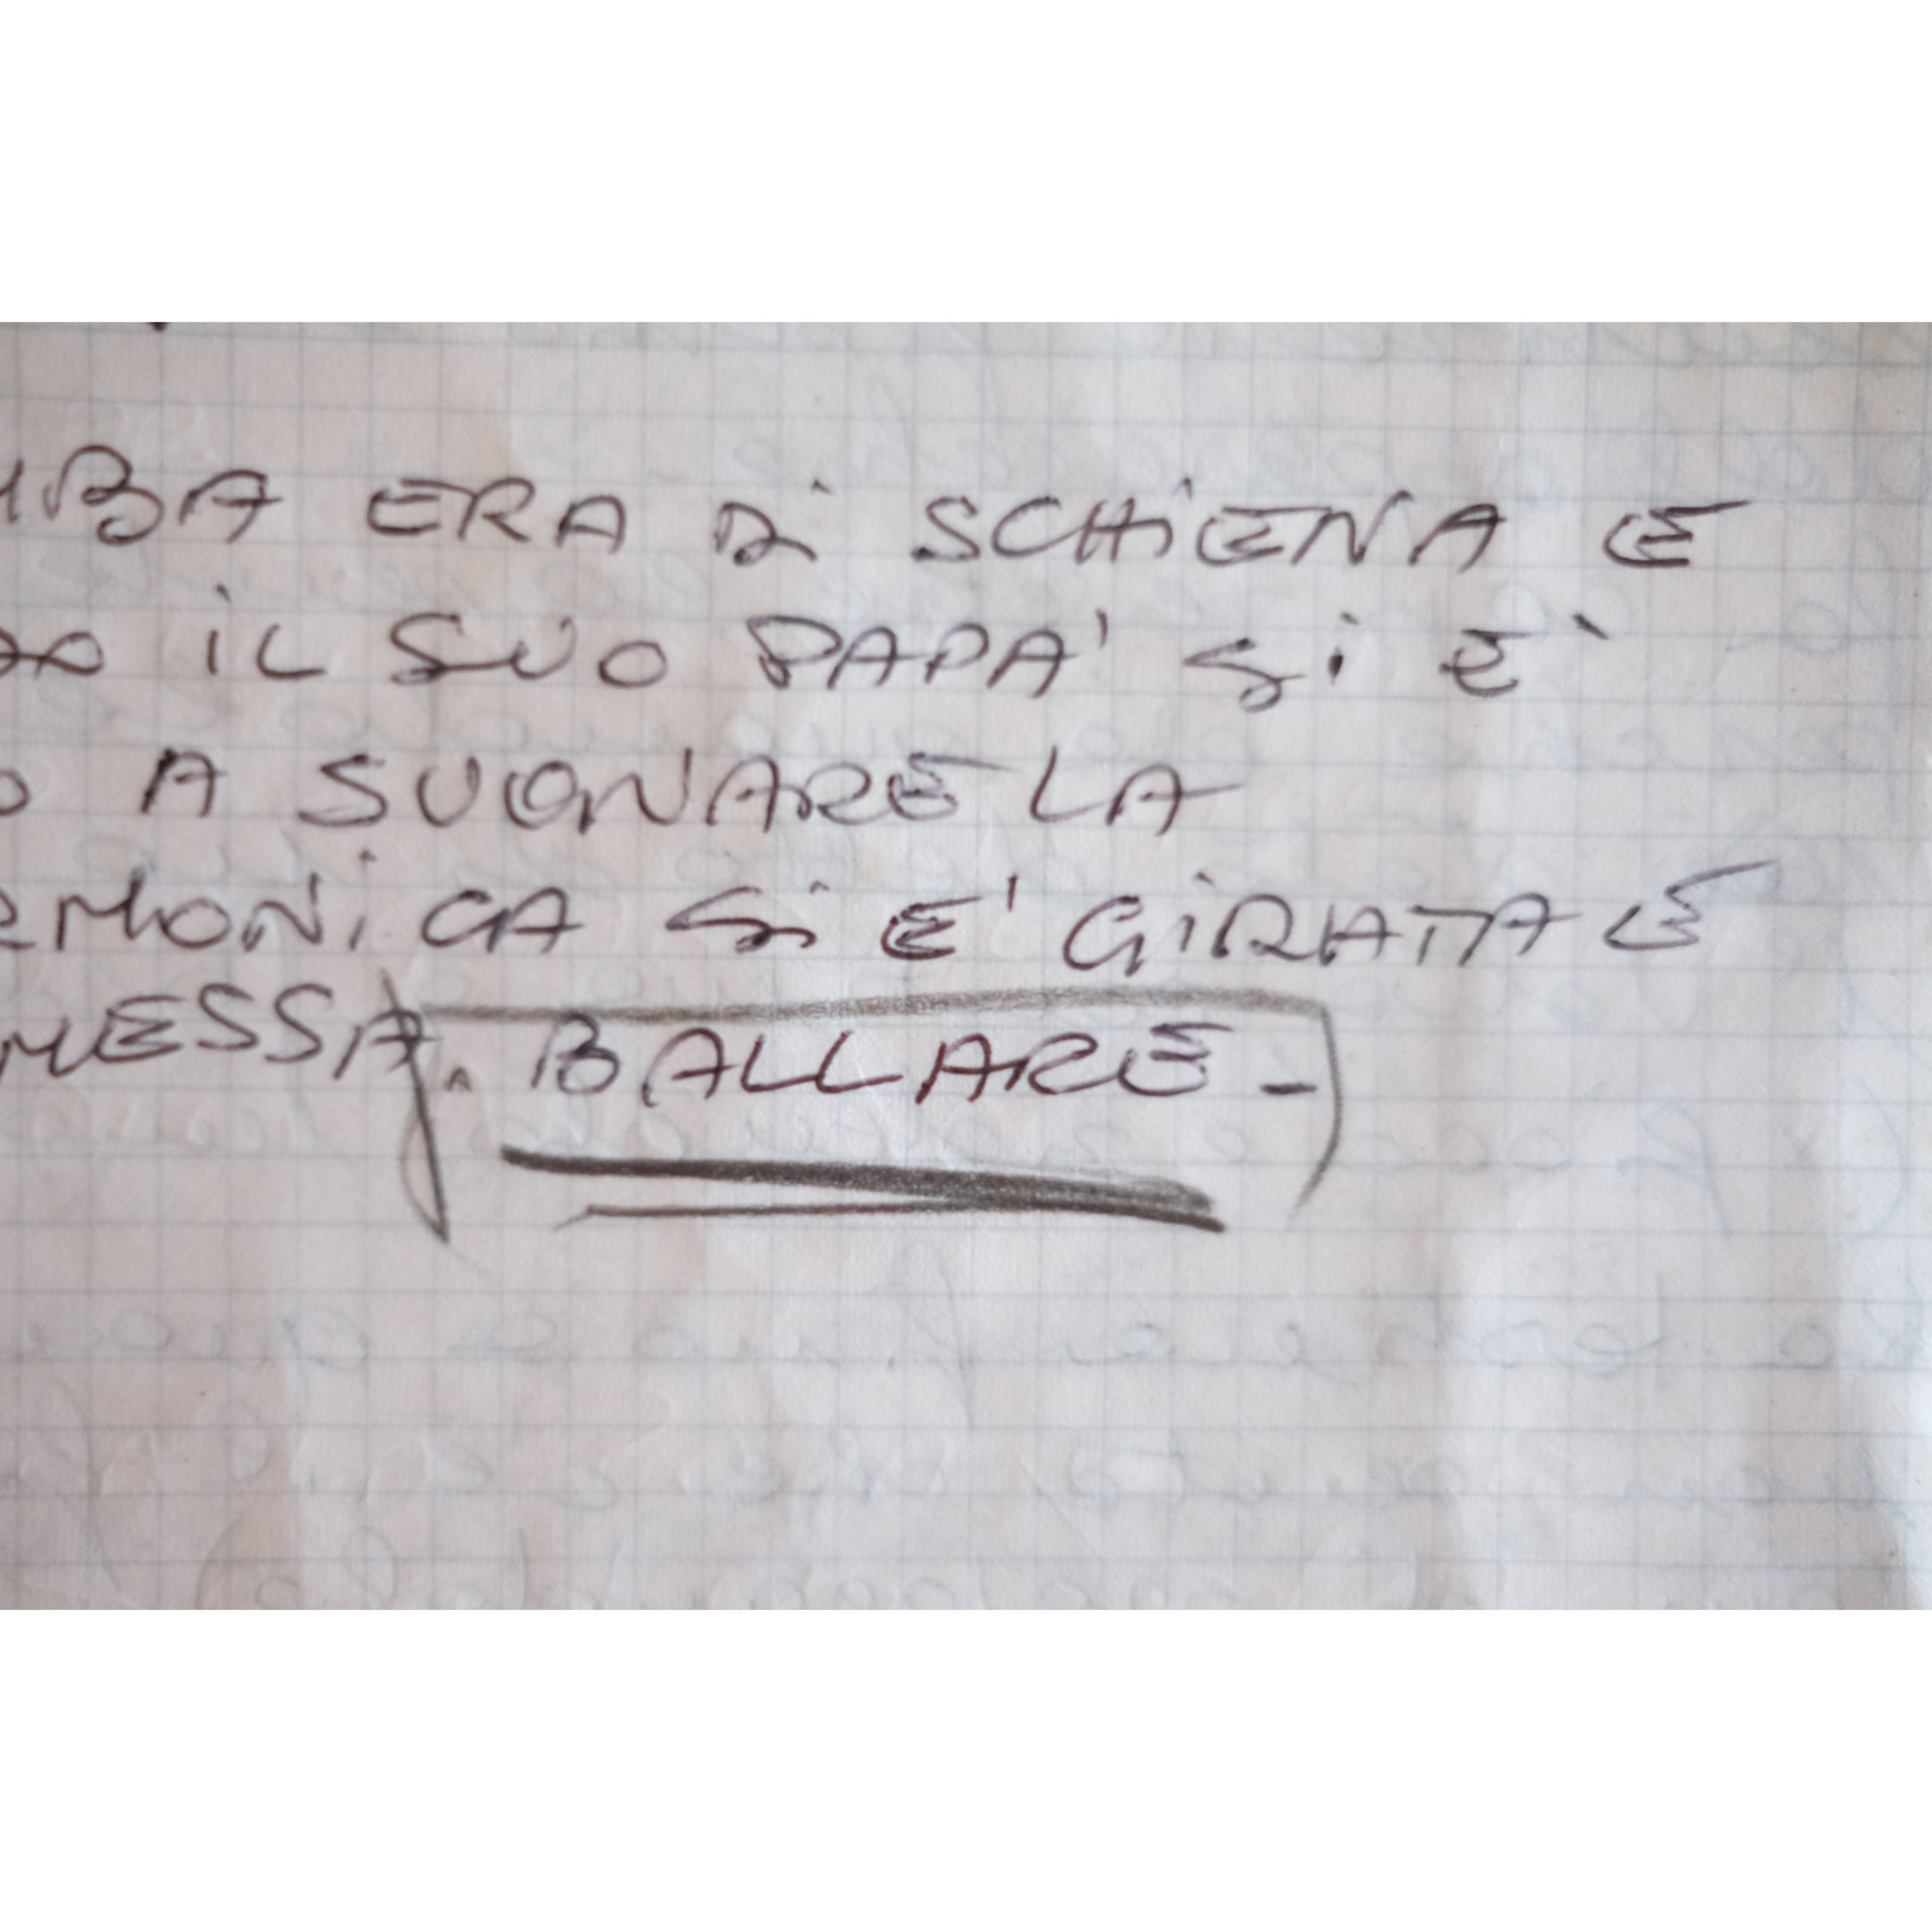 ERA DI SCHIENA E
IL SUO PAPA' SI È
A SUONARE LA
SI E' GIRATA E
MESSA. BALLARE -